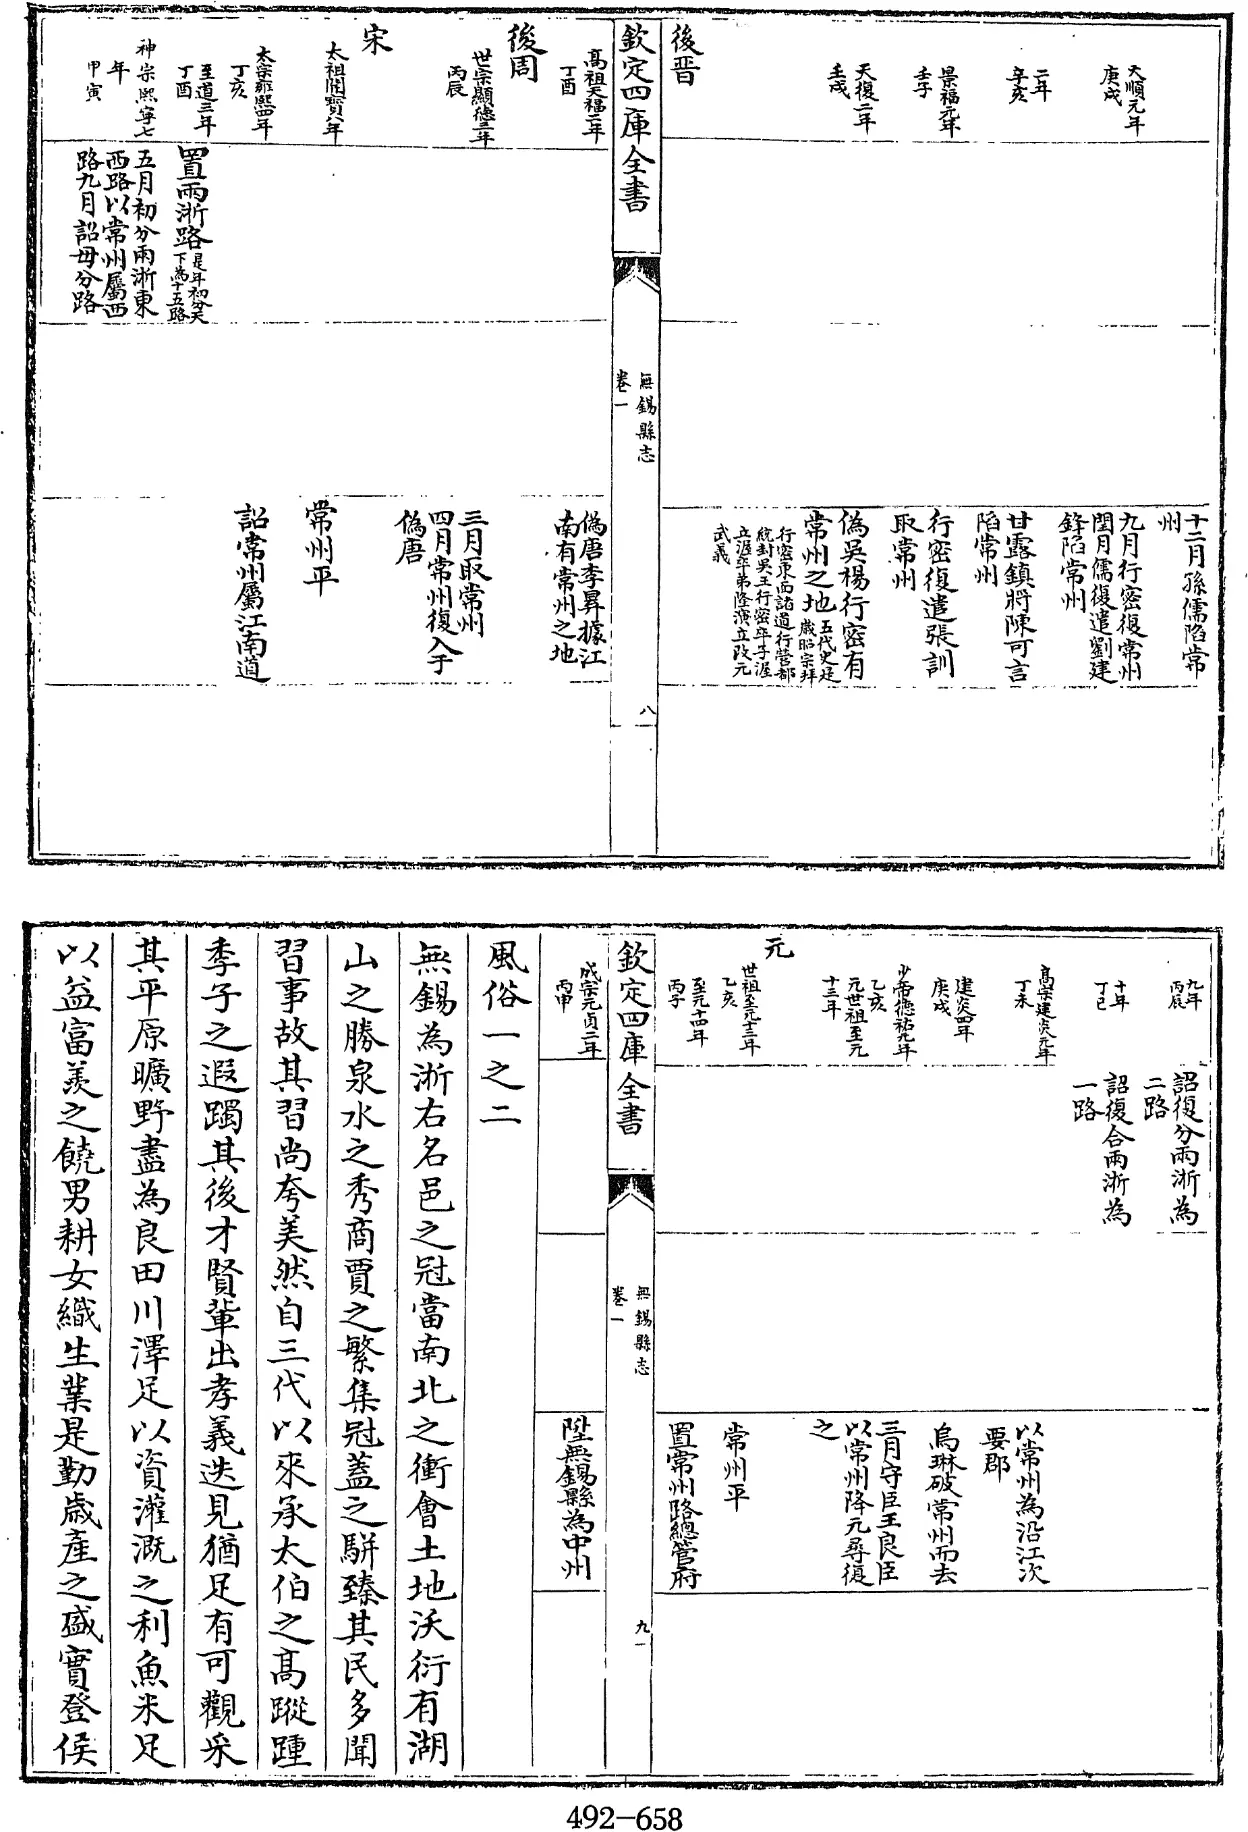 大順元年
庚戌
十二月孫儒陷常
州
二年
辛亥
九月行密復常州
閏月儒復遣劉建
鋒陷常州
景福元年
壬子
甘露鎮將陳可言
陷常州
行密復遣張訓
取常州
天復二年
壬戌
偽吳楊行密有
常州之地五代史是
歲昭宗拜
行密東面諸道行營都
統封吳王行密卒子渥
立渥卒弟隆演立改元
武義
後晉
欽定四庫全書
無錫縣志
卷一
八
高祖天福二年
丁酉
偽唐李昇據江
南有常州之地
後周
世宗顯德三年
丙辰
三月取常州
四月常州復入于
偽唐
宋
太祖開寶八年
常州平
太宗雍熙四年
丁亥
詔常州屬江南道
至道三年
丁酉
置兩浙路是年初分天
下為十五路
神宗熙寧七
年
甲寅
五月初分兩浙東
西路以常州屬西
路九月詔毋分路
九年
丙辰
詔復分兩浙為
二路
十年
丁巳
詔復合兩浙為
一路
高宗建炎元年
丁未
以常州為沿江次
要郡
建炎四年
庚戌
烏珠破常州而去
少帝德祐元年
乙亥
元世祖至元
十三年
三月守臣王良臣
以常州降元尋復
之
元
世祖至元十三年
乙亥
常州平
至元十四年
丙子
置常州路總管府
欽定四庫全書
無錫縣志
卷一
九
成宗元貞二年
丙申
陞無錫縣為中州
風俗一之二
無錫為浙右名邑之冠當南北之衝會土地沃衍有湖
山之勝泉水之秀商賈之繁集冠蓋之駢臻其民多聞
習事故其習尚夸美然自三代以來承太伯之高蹤踵
季子之遐躅其後才賢輩出孝義迭見猶足有可觀采
其平原曠野盡為良田川澤足以資灌溉之利魚米足
以益富羨之饒男耕女織生業是勤歲產之盛實登侯
492-658